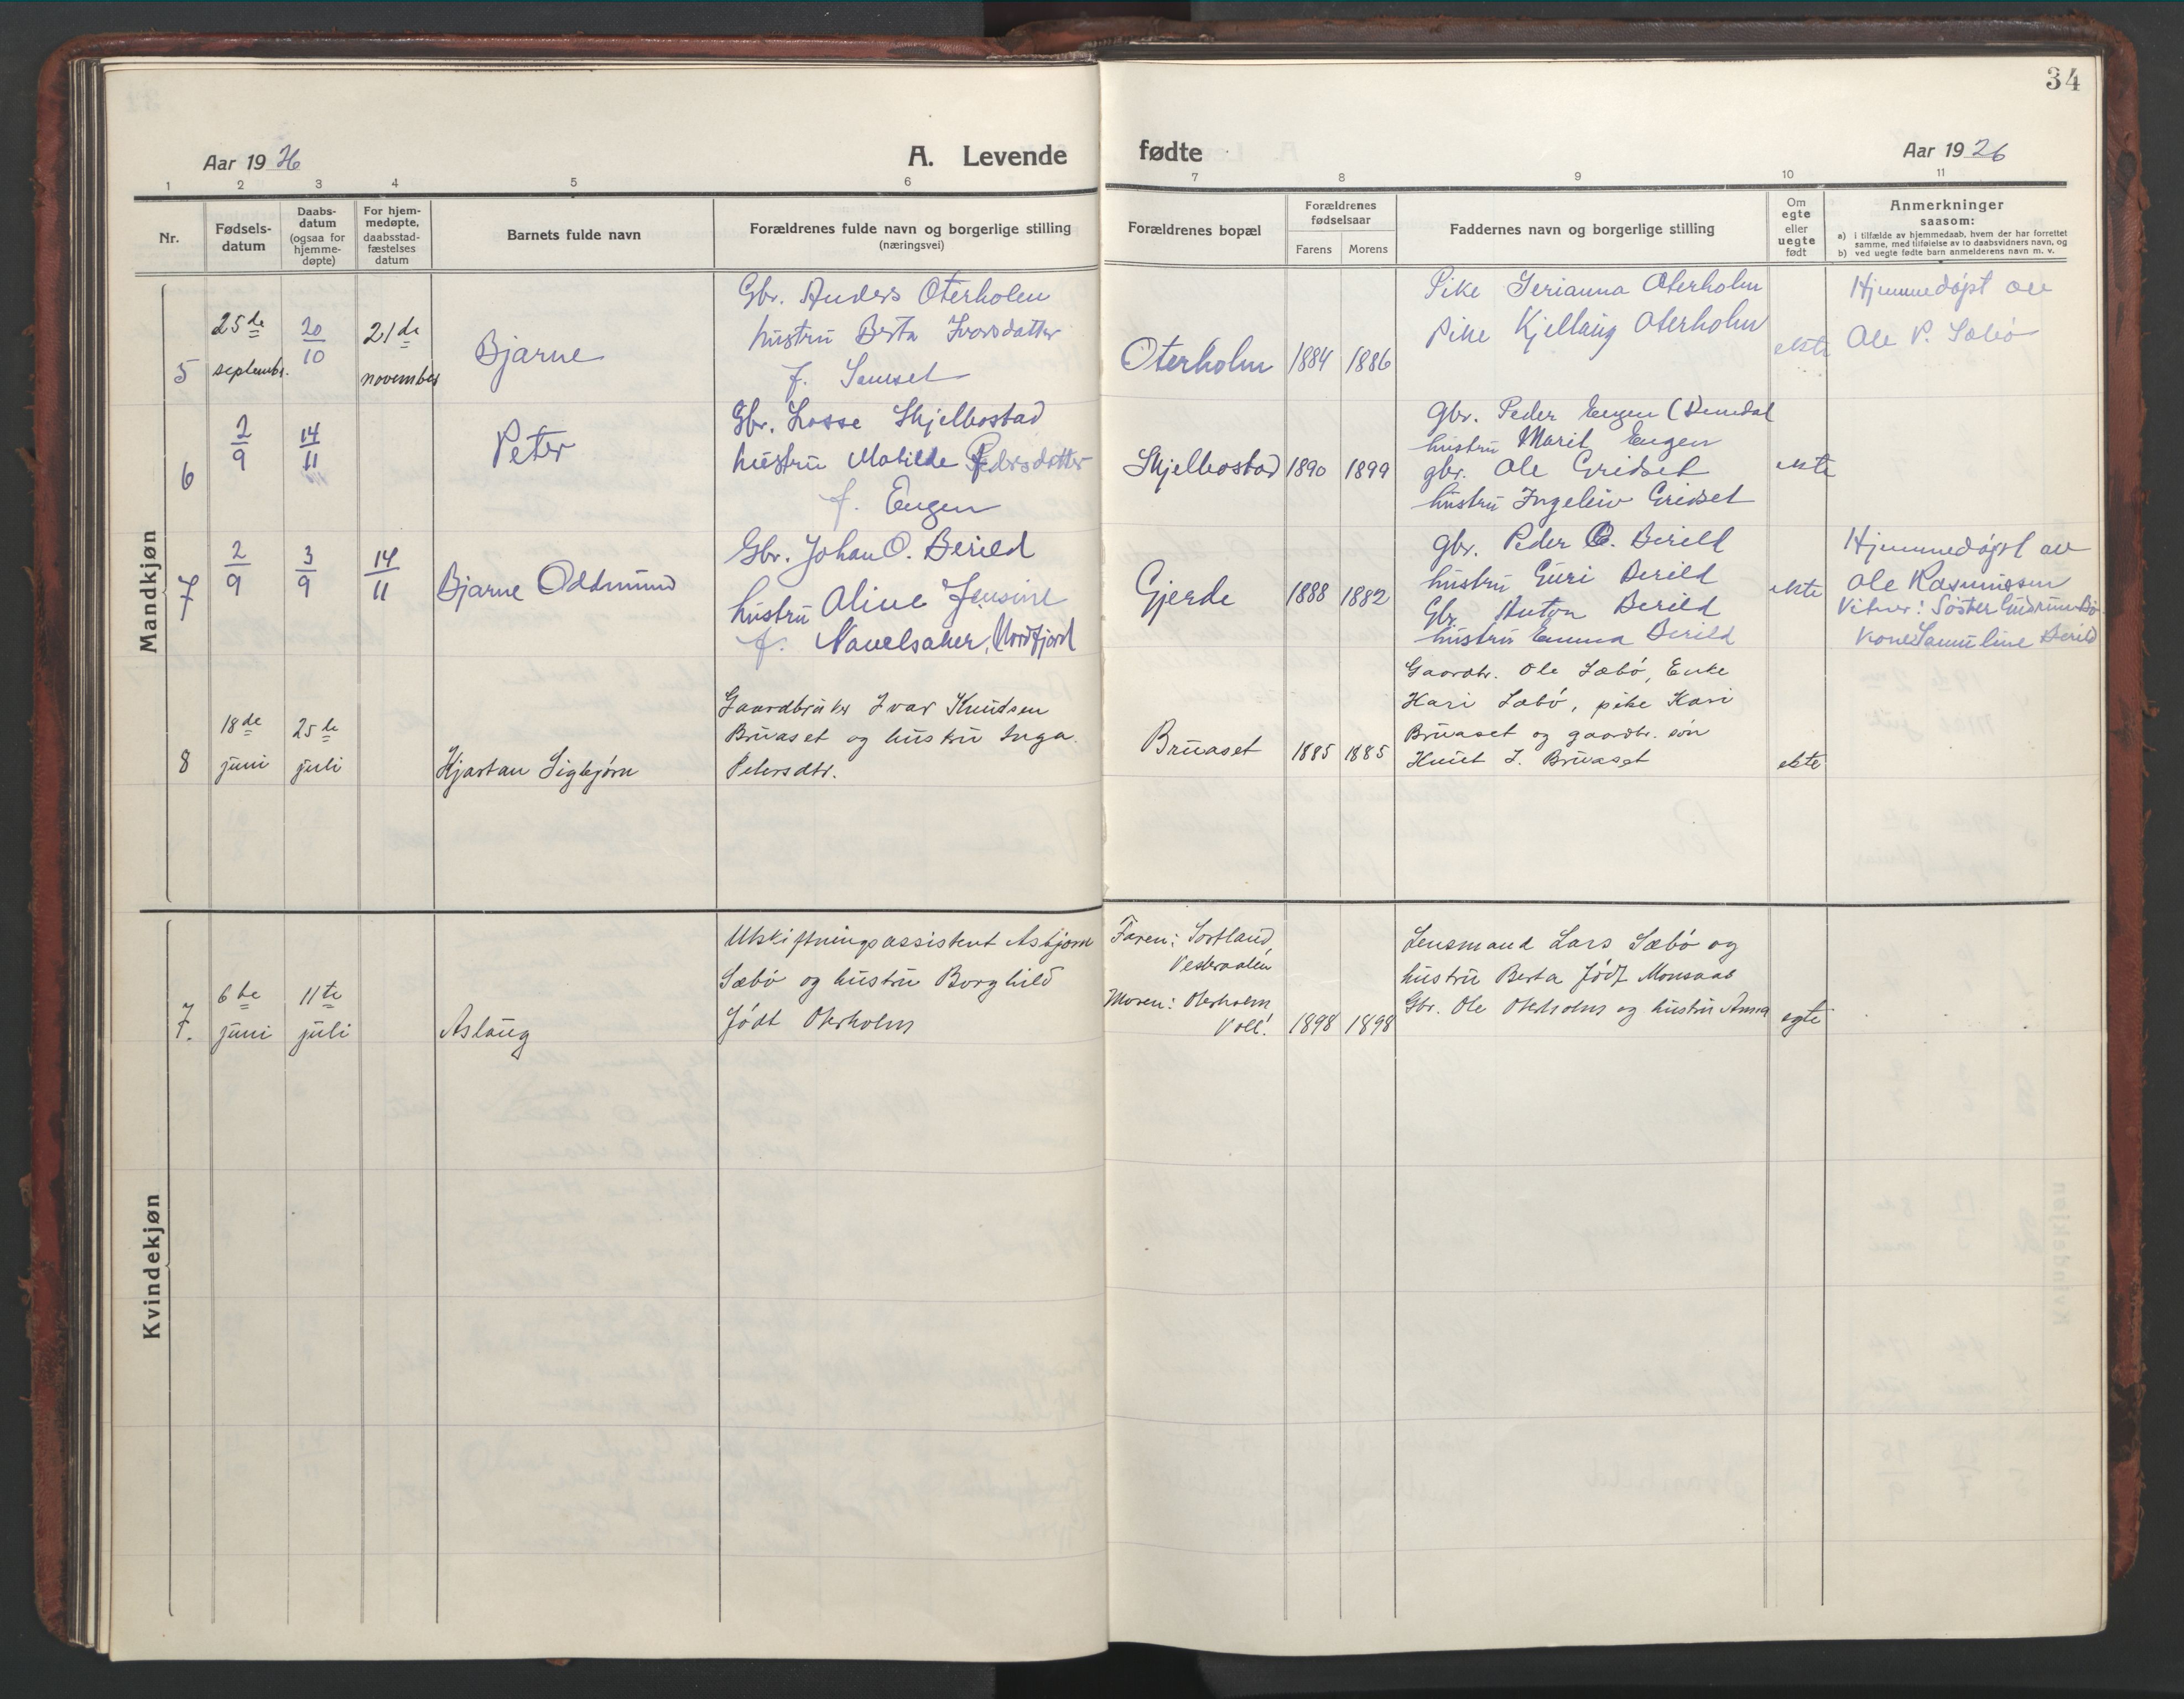 34
Aar 1926
A. Levende fødte
Aar 1926
1 2 3 4 5 6 7 8 9 10 11
Nr.
Fødsels-
datum
Daabs-
datum
(ogsaa for
hjemme-
døpte)
For hjem-
medøpte,
daabsstad-
fæstelses
datum
Barnets fulde navn
Forældrenes fulde navn og borgerlige stilling
(næringsvei)
Forældrenes bopæl
Forældrenes
fødselsaar
Farens Morens
Faddernes navn og borgerlige stilling
Om
egte
eller
uegte
født
Anmerkninger
saasom:
a) i tilfælde av hjemmedaab, hvem der har forrettet
samme, med tilføielse av to daabsvidners navn, og
b) ved uegte fødte barn anmelderens navn m. v.
Mandkjøn
5
25de
septembr.
20/10
21de
november
Bjarne
Gbr. Anders Oterholm
hustru Berta Ivarsdatter
f. Samset
Oterholm
1884 1886
Pike Gerianna Oterholm
Pike Kjellaug Oterholm
ekte
Hjemmedøpt av
Ole P. Sæbö
6
2/9
14/11
Peter
Gbr. Lasse Skjelbostad
hustru Matilde Pedersdatter
f. Engen
Skjelbostad
1890 1899
gbr. Peder Engen (
hustru Marit Engen
gbr. Ole Gridset
hustru Ingeleiv Gridset
ekte
7
2/9
3/9
14/11
Bjarne Oddmund
Gbr. Johan O. Berild
hustru Aline Jensine
f. Navelsaker, Nordfjord
Gjerde
1888 1882
gbr. Peder O. Berild
hustru Guri Berild
Gbr. Anton Berild
hustru Emma Berild
ekte
Hjemmedøpt av
Ole Rasmussen
Vitner: Söster Gudrun Bö
Kone Samuline Berild
8
18de
juni
25de
juli
Kjartan Sigbjørn
Gaardbruker Ivar Knudsen
Bruaset og hustru Inga
Petersdtr.
Bruaset
1885 1885
Gaardbr. Ole Sæbö, Enke
Kari Sæbö, pike Kari
Bruaset og gaardbr. sön
Knut I. Bruaset
ekte
Kvindekjøn
7.
6te
juni
11te
juli
Aslaug
Utskiftningsassistent Asbjørn
Sæbö og hustru Borghild
född Oterholm
Faren: Sortland,
Vesteraalen
Moren: Oterholm
Voll.
1898 1898
Lensmand Lars Sæbö og
hustru Berta född Monsaas
Gbr. Ole Oterholm og hustru Anna
egte